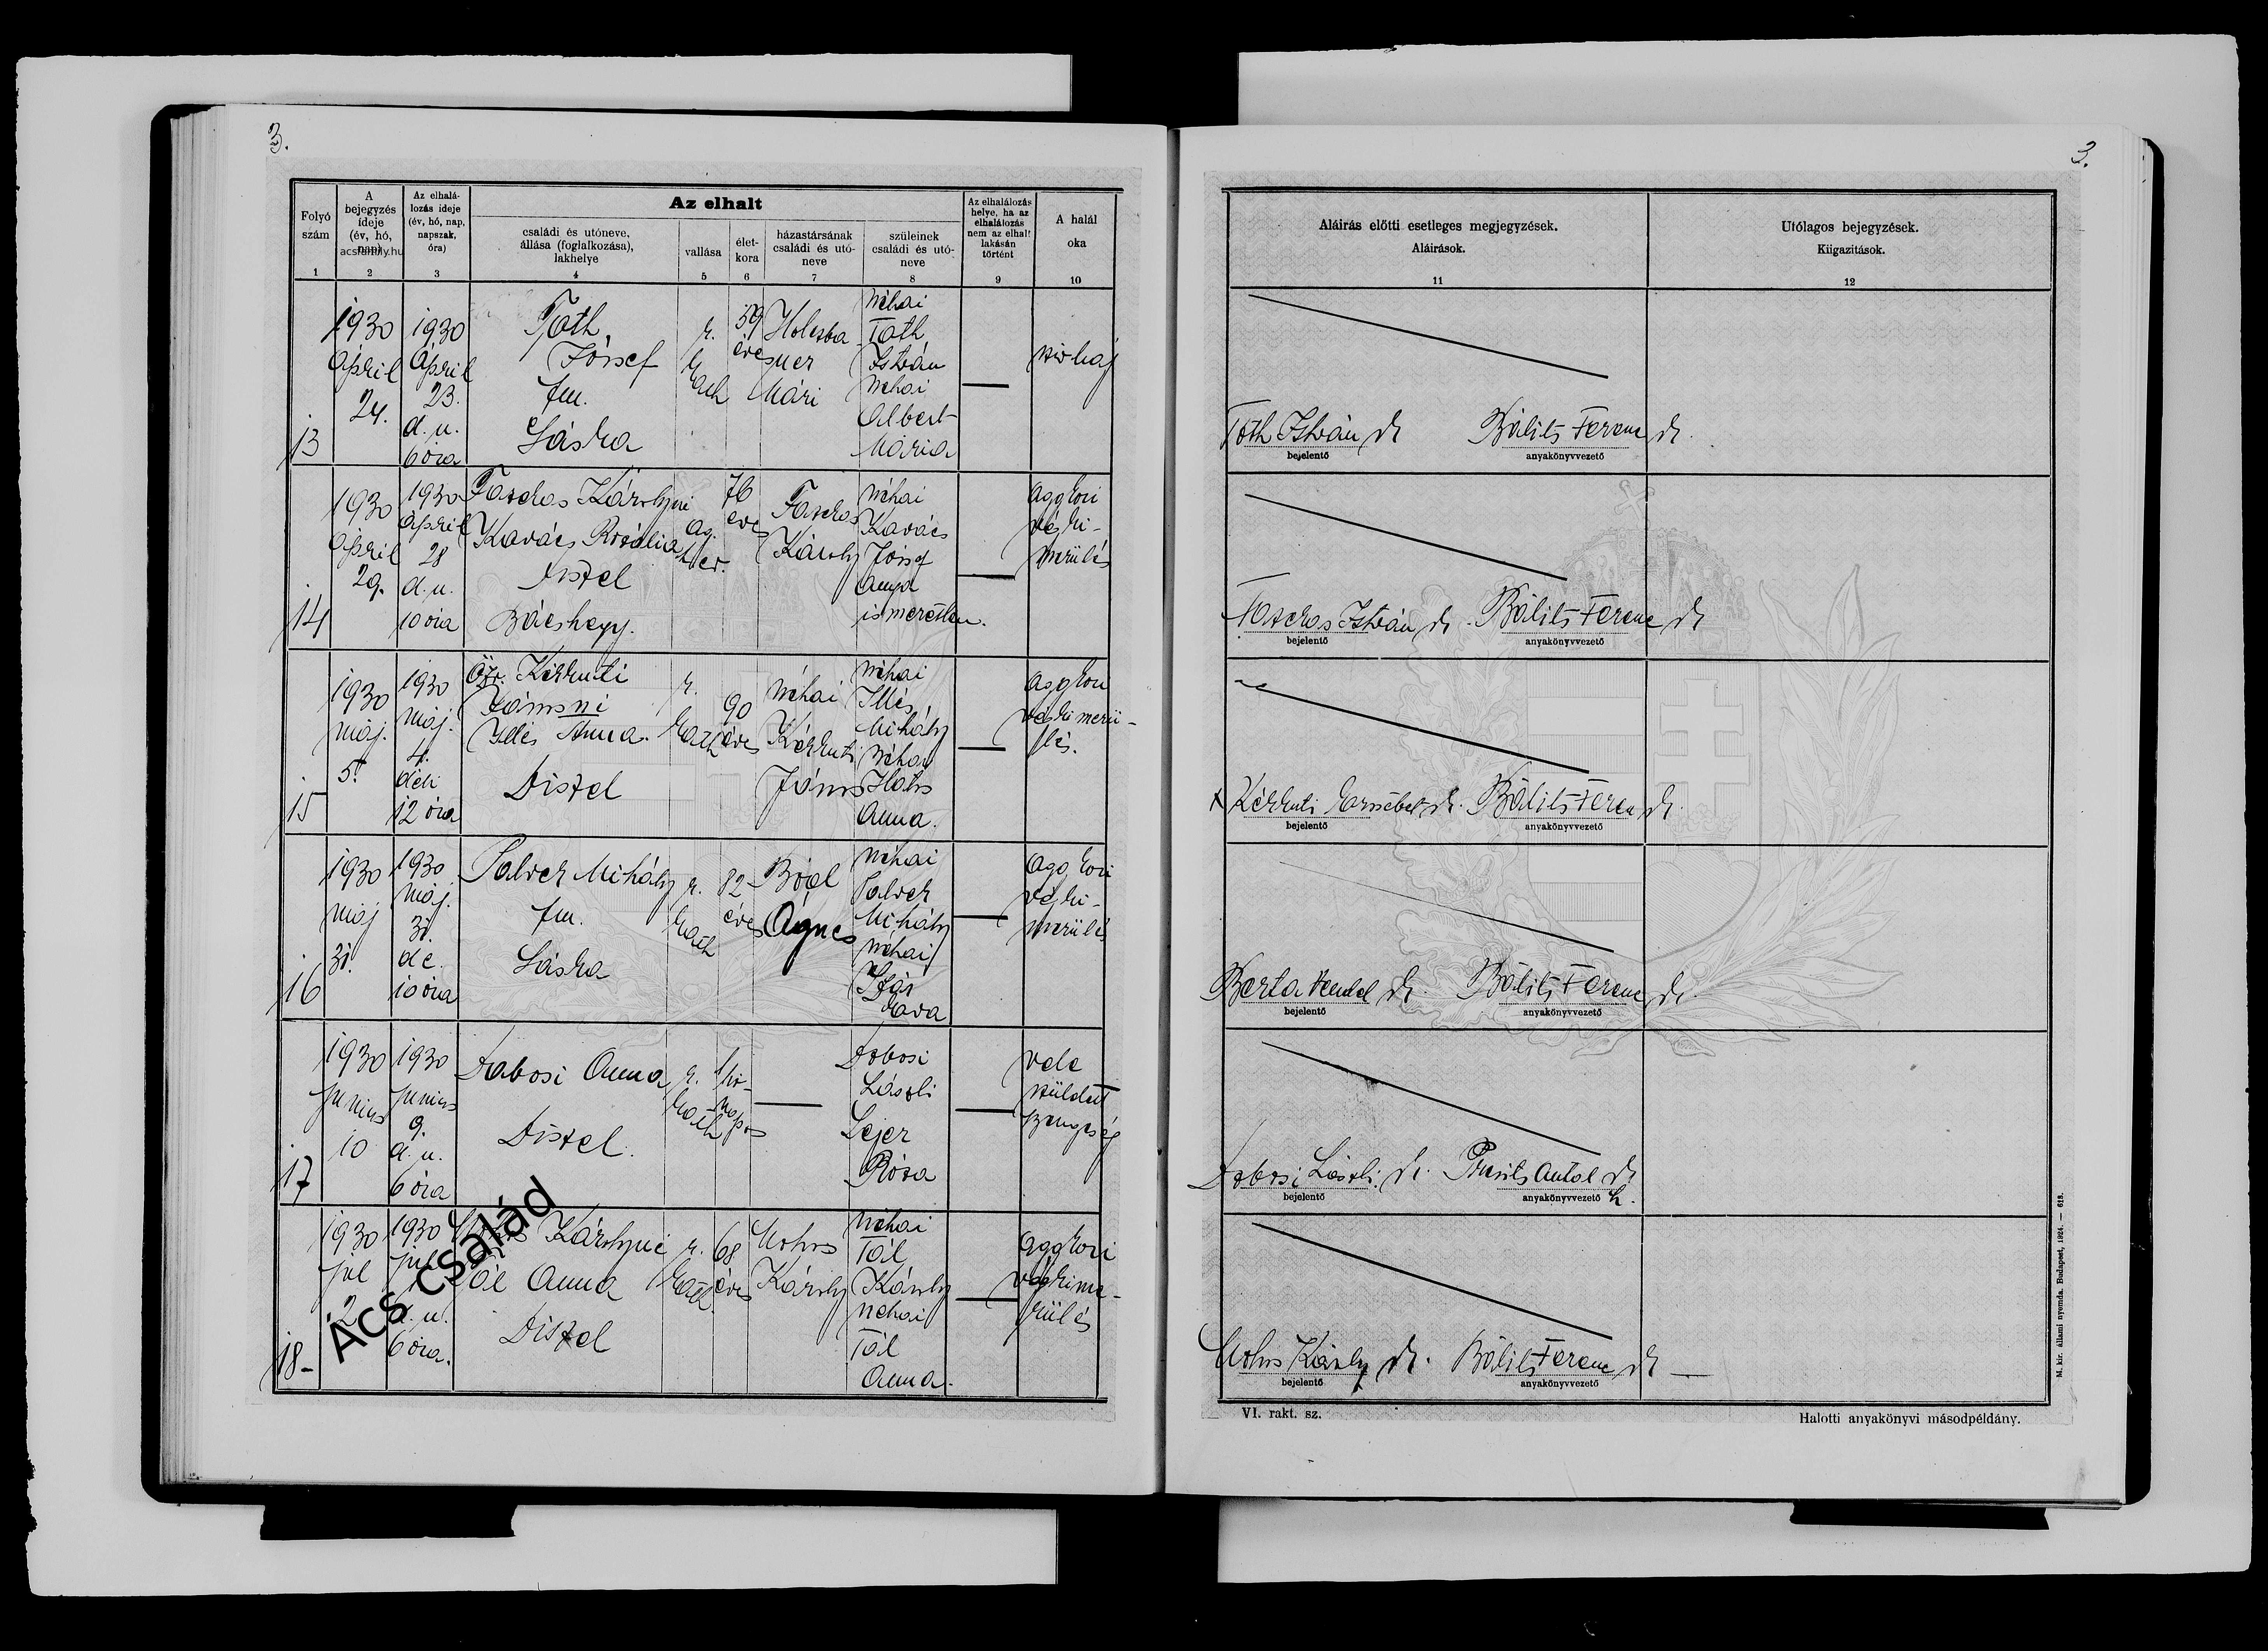 3.
Folyó
szám
A
bejegyzés
ideje
(év, hó,
nap)
acsfamily.hu
Az elhalá-
lozás ideje
(év, hó, nap,
napszak,
óra)
Az elhalt
családi és utóneve,
állása (foglalkozása),
lakhelye
vallása
élet-
kora
házastársának
családi és utó-
neve
szüleinek
családi és utó-
neve
Az elhalálozás
helye, ha az
elhalálozás
nem az elhalt
lakásán
történt
A halál
oka
1 2 3 4 5 6 7 8 9 10
13
1930
április
24.
1930
április
23.
d. u.
6 óra
Tóth
József
fm.
Sáska
r.
kath
59
éves
Mári
néhai
Tóth
István
néhai
Albert
Mária
szívbaj
14
1930
április
29.
1930
április
28
d. u.
10 óra
Károlyné
Kovács Rozália
Diszel
Bácshegy.
ág.
ev.
76
éves
Károly
néhai
Kovács
József
anya
ismeretlen.
aggkori
végki-
merülés
15
1930
máj.
5.
1930
máj.
4.
déli
12 óra
özv. Kérkuti
Jánosné
Illés Anna.
Diszel
r.
kath
90
éves
néhai
Kérkuti
János
néhai
Illés
Mihály
néhai
Anna.
aggkori
végkimerü-
lés.
16
1930
máj
31.
1930
máj.
31.
de.
10 óra
Mihály
fm.
Sáska
r.
kath
82
éves
Ágnes
néhai
Mihály
néhai
Éva
aggkori
végki-
merülés
17
1930
junius
10
1930
junius
9.
d. u.
6 óra
Dobosi Anna
Diszel.
r.
kath
Dobosi
László
Lejer
Róza
vele
született
gyengeség
18
1930
jul
2
1930
jul
d. u.
6 óra.
Károlyné
Tál Anna
Diszel
r.
kath
68
éves
Mohos
Károly
néhai
Tál
Károly
néhai
Tál
Anna.
aggkori
végkime-
rülés
Ács család
3.
Aláírás előtti esetleges megjegyzések.
Aláírások.
11
Utólagos bejegyzések.
Kiigazítások.
12
Tóth István sk Bálits Ferenc sk.
bejelentő anyakönyvvezető
István sk. Bálits Ferenc sk
bejelentő anyakönyvvezető
Kérkuti Erzsébet sk. Bálits Ferenc sk.
bejelentő anyakönyvvezető
Berta Vendel sk. Bálits Ferenc sk.
bejelentő anyakönyvvezető
Dobosi László sk. Antal sk
bejelentő anyakönyvvezető h.
Mohos Károly sk. Bálits Ferenc sk
bejelentő anyakönyvvezető
VI. rakt. sz.
Halotti anyakönyvi másodpéldány.
M. kir. állami nyomda. Budapest, 1924. — 618.